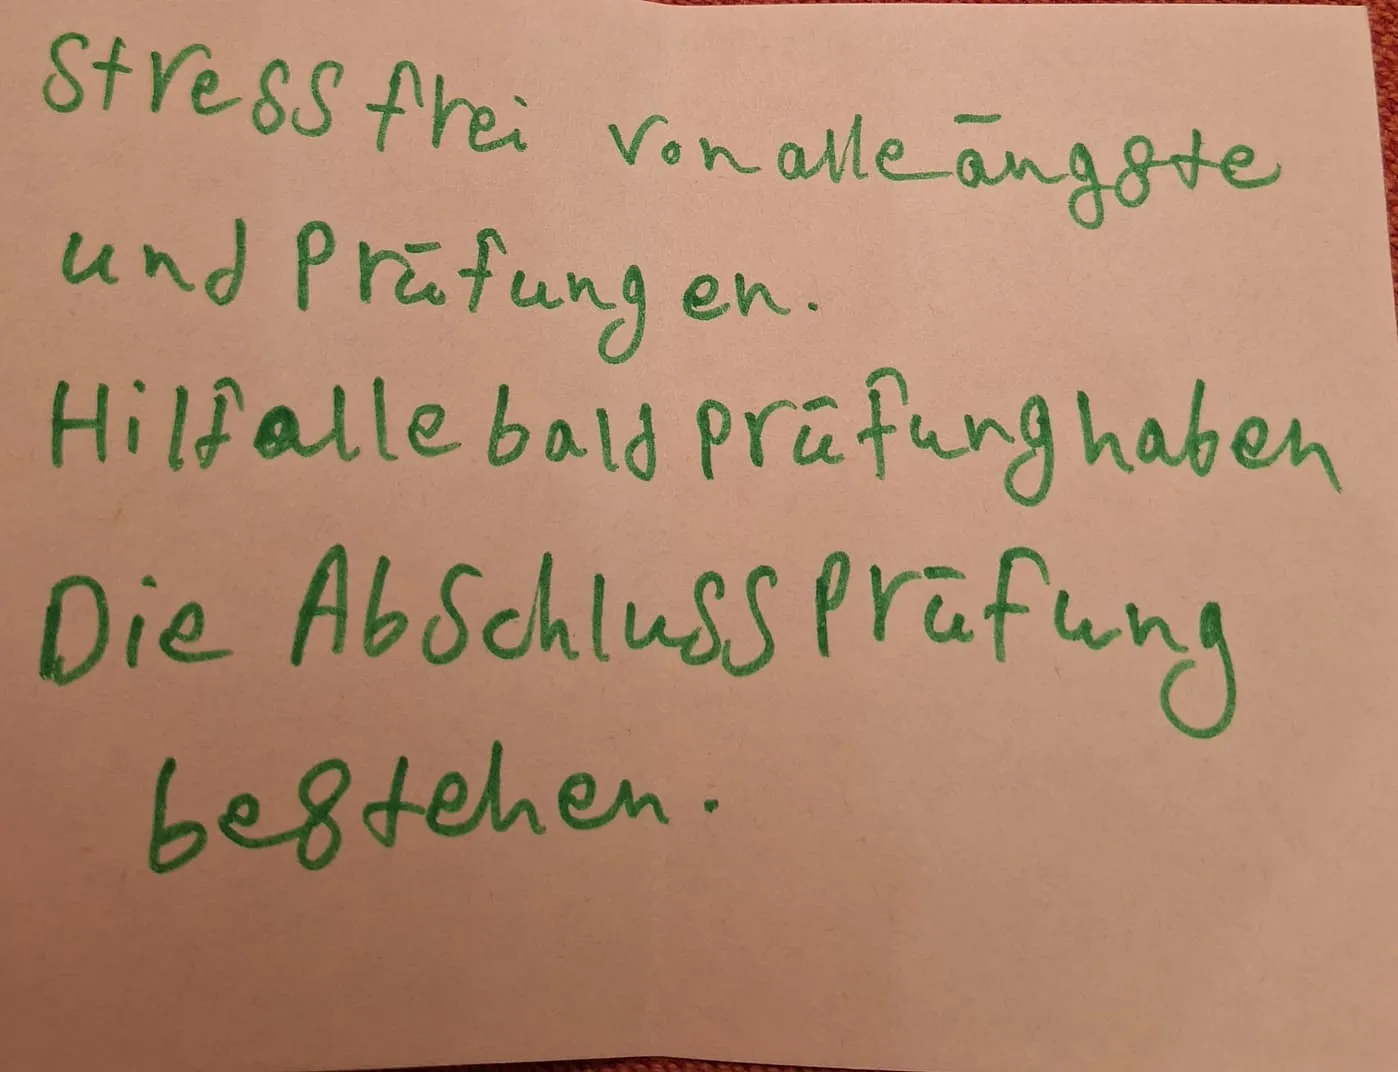 Stressfrei von alle ängste
und Prüfungen.
Hilf alle bald prüfung haben
Die Abschlussprüfung
bestehen.